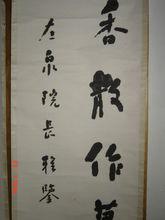 香散作萬
左泉院長雅鑒